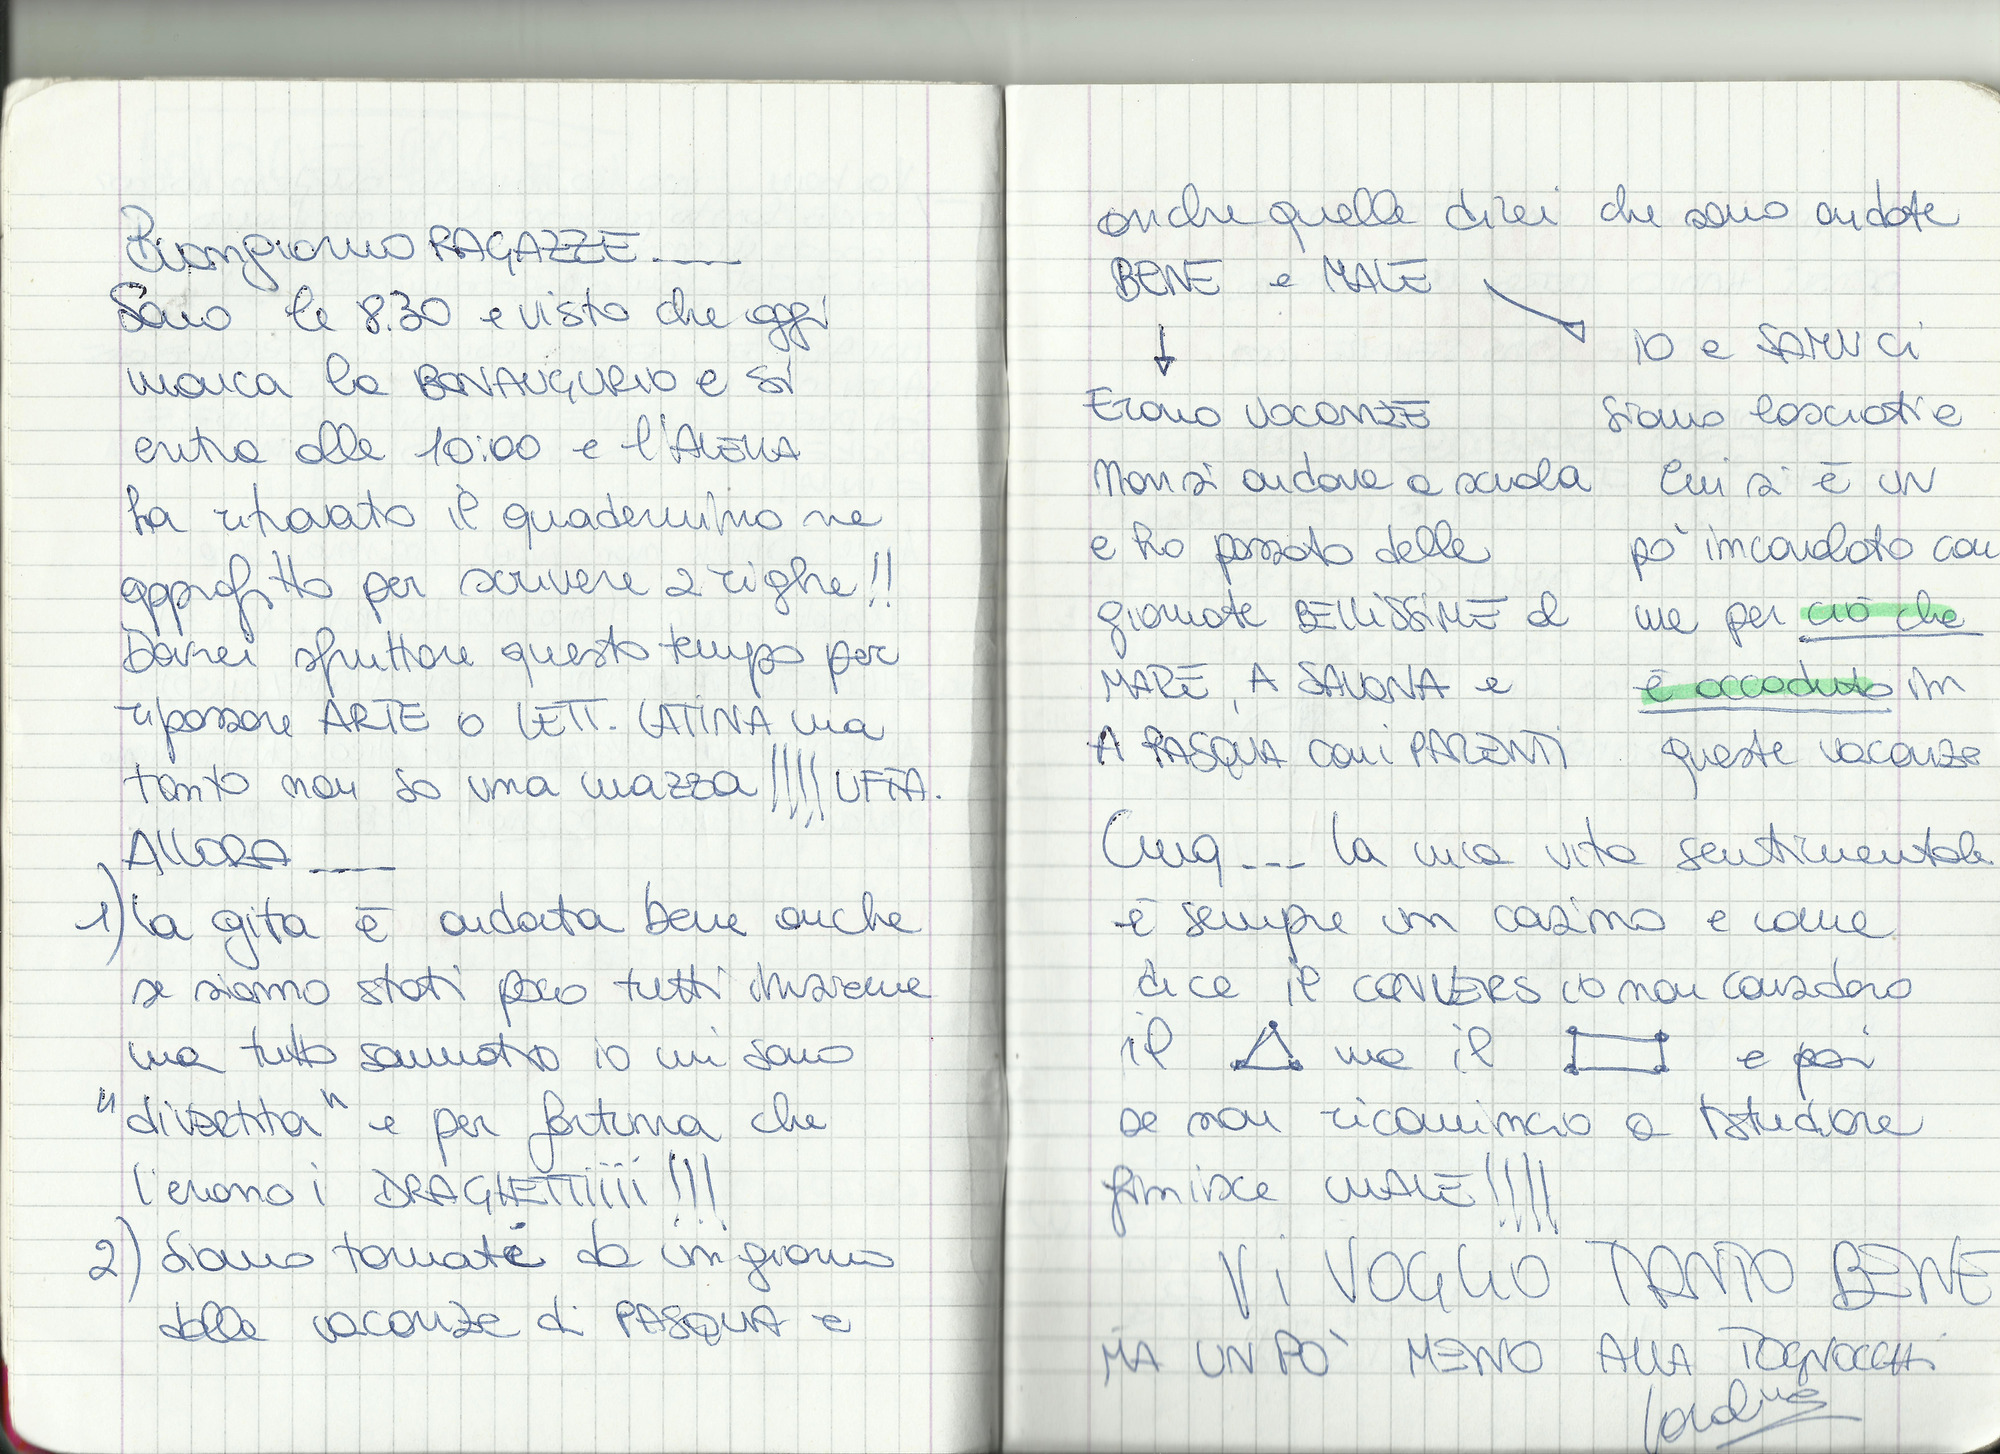 Buongiorno RAGAZZE......
Sono le 8.30 e visto che oggi
manca la BONAUGURIO e si
entra alle 10:00 e l'ALENA
ha ritrovato il quadernino ne
approfitto per scrivere 2 righe!!
Dovrei sfruttare questo tempo per
ripassare ARTE o LETT. LATINA ma
tanto non so una mazza!!!! UFFA.
ALLORA ......
1) La gita è andata bene anche
se siamo stati poco tutti insieme
ma tutto sommato io mi sono
"divertita" e per fortuna che
c'erano i DRAGHETTIiiii!!!
2) Siamo tornate da un giorno
dalle vacanze di PASQUA e
anche quelle direi che sono andate
BENE e MALE
↓
IO e SAMU CI
Erano VACANZE
siamo lasciati e
Non si andava a scuola
lui si è un
e ho passato delle
pò incavolato con
giornate BELLISSIME al
me per ciò che
MARE, A SAVONA e
è accaduto in
A PASQUA con i PARENTI
queste vacanze
Cmq... la mia vita sentimentale
è sempre un casino e come
dice il CONVERS io non considero
il △ ma il ▭ e poi
se non ricomincio a studiare
finisce MALE!!!!!
VI VOGLIO TANTO BENE
MA UN PO' MENO ALLA TOGNOCCHI